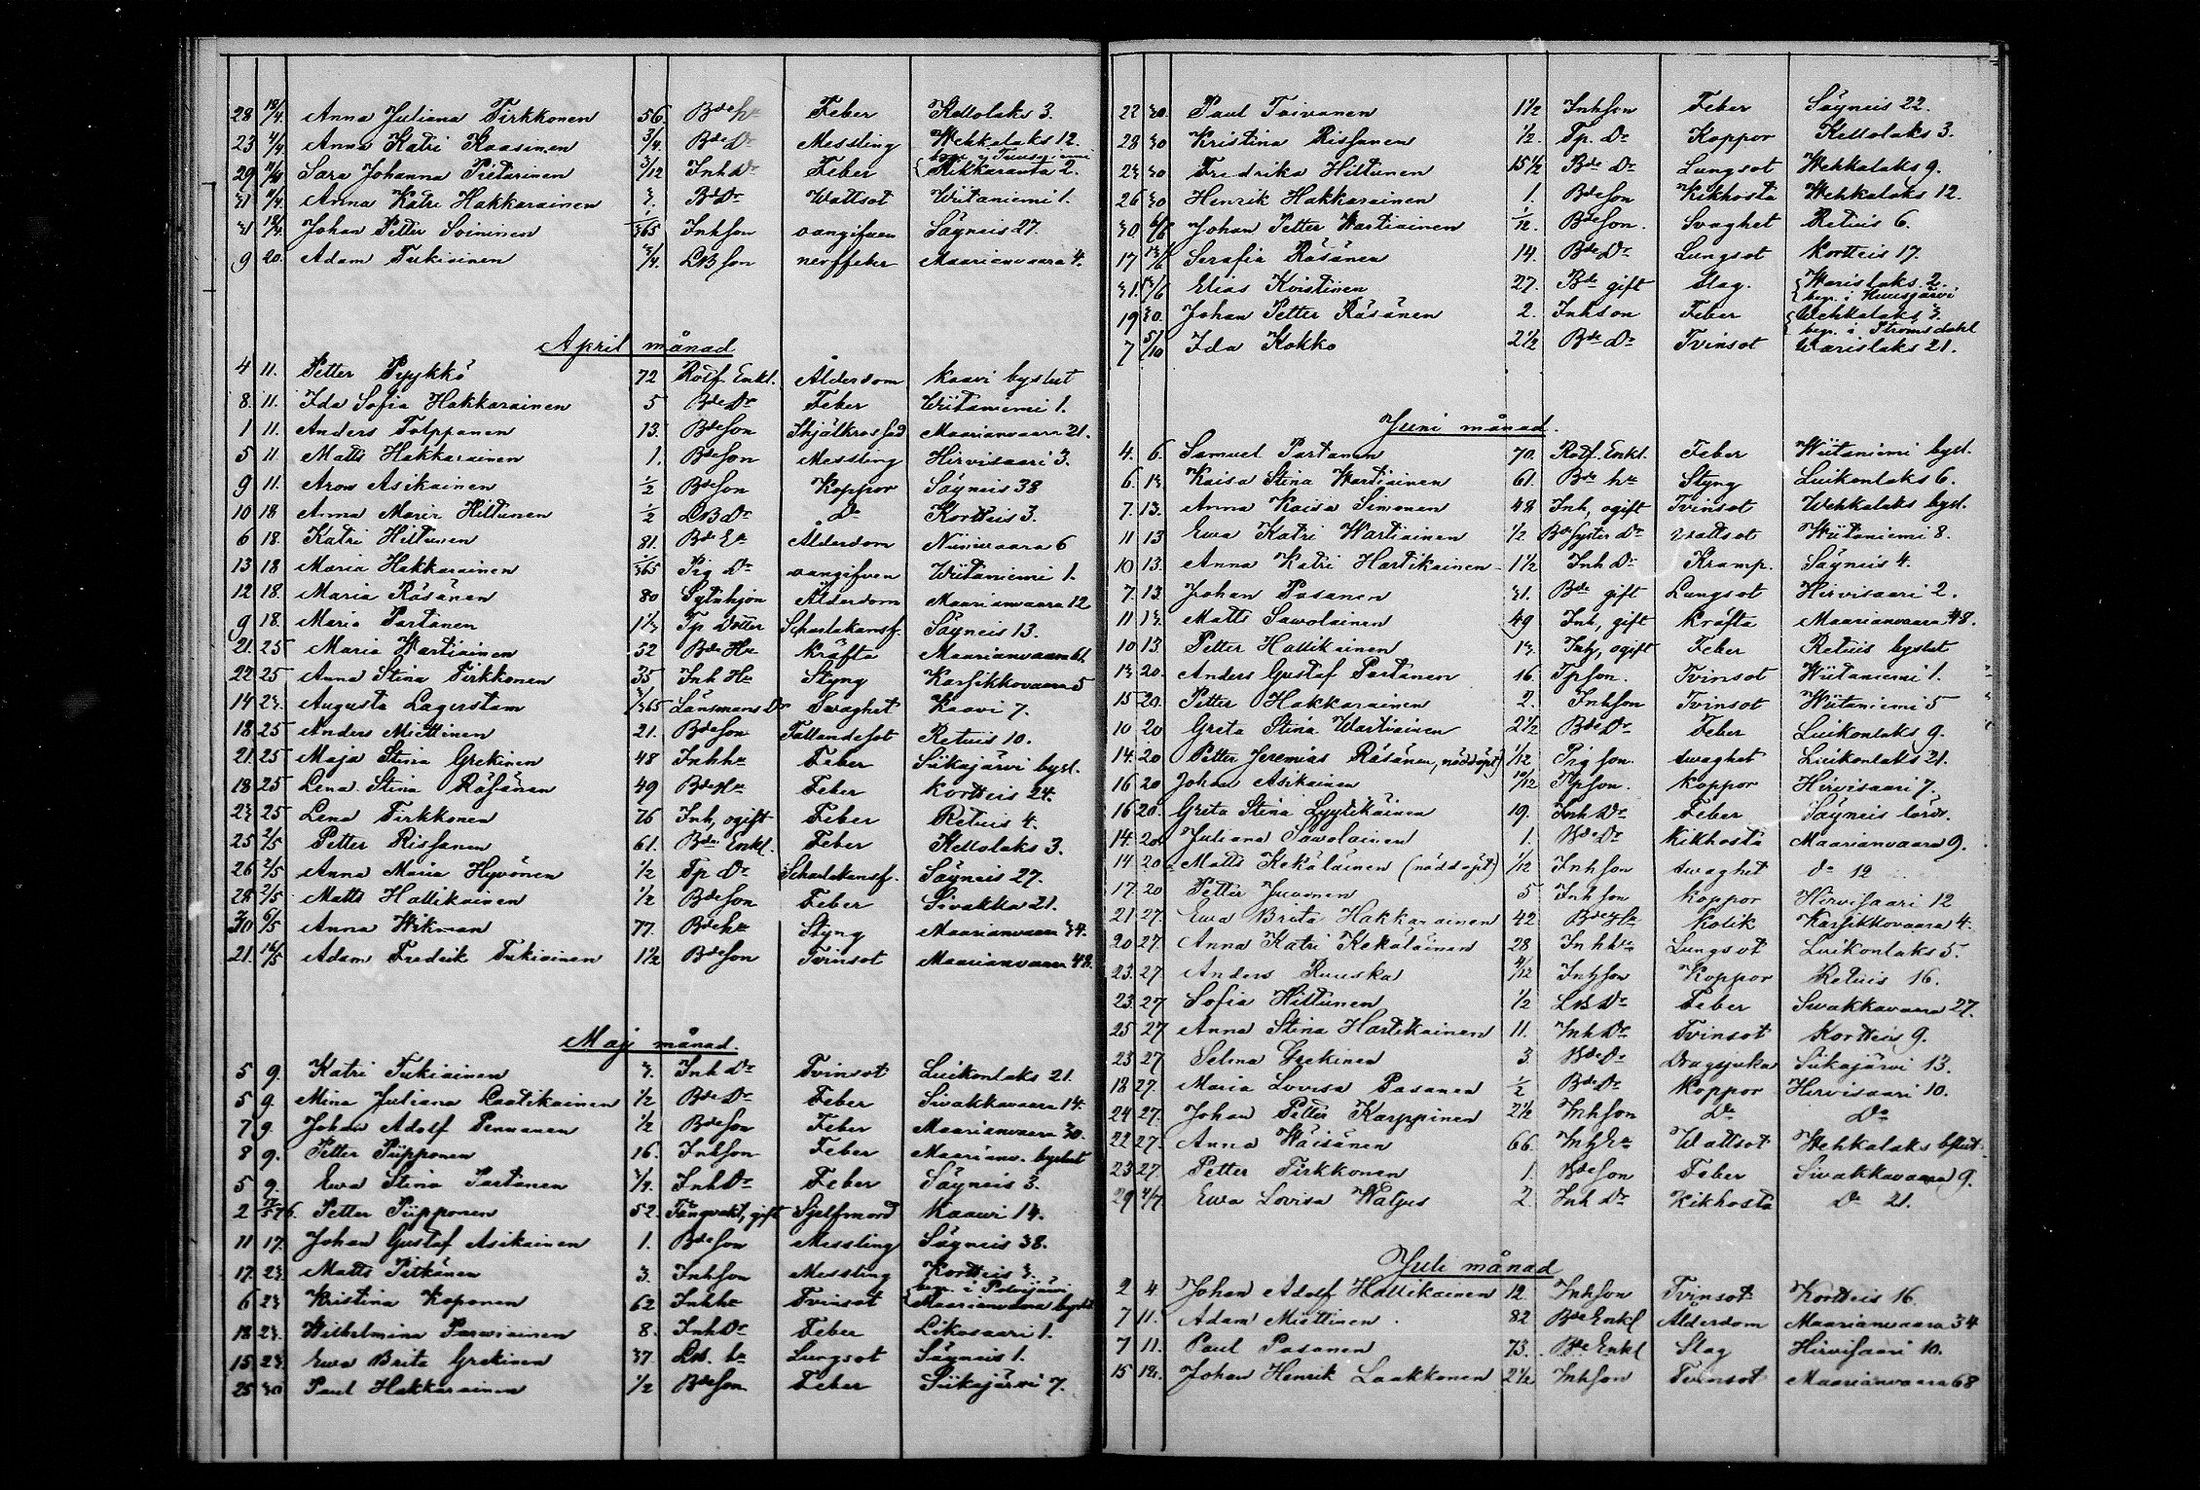 28 18/4. Anna Juliana Tirkkonen 56 Bde hu Feber Kettolaks 3.
23 4/4 Anna Katri Kaasinen 3/4. Bde Dr Messling Wehkalaks 12.
29 11/4 Sara Johanna Pietarinen 3/12 Inh Dr Feber Rikkaranta 2.
31 11/4. Anna Katri Hakkarainen 3. Bde Dr Wattsot Wiitaniemi 1.
31 18/4. Johan Petter Soininen 1/365 Inhson oangifven Säyneis 27.
9 20. Adam Tukiainen 3/4. LB son nerffeber Maarianvaara 4.
April månad
4 11. Petter Pyykkö 72 Rotf. Enkl. Ålderdom Kaavi byslut
8. 11. Ida Sofia Hakkarainen 5 Bde Dr Feber Wiitaniemi 1.
1 11. Anders Tolppanen 13. Bdeson Ihjälkrossad Maarianvaara 21.
5 11 Matts Hakkarainen 1. Bdeson Messling Hirvisaari 3.
9 11. Aron Asikainen 1/2 Bdeson Koppor Säyneis 38
10 18 Anna Maria Hiltunen 1/2 LB Dr Do Kortteis 3.
6 18. Katri Hiltunen 81. Bde Ea Ålderdom Niinivaara 6
13 18 Maria Hakkarainen 1/365 Pig Dr oangifven Wiitaniemi 1.
12 18. Maria Räsänen 80 Sytnhjon Ålderdom Maarianvaara 12
9 18. Maria Partanen 1 1/3 Tp dotter Scharlakansf. Säyneis 13.
21. 25 Maria Wartiainen 52 Bde Hu Kräfta Maarianvaara 61.
22 25 Anna Stina Tirkkonen 35 Inh Hu Styng Karsikkovaara 5
14 23. Augusta Lagerstam 3/365 Länsmans Dr Swaghet Kaavi 7.
18 25 Anders Miettinen 21. Bdeson Fallandesot Retuis 10.
21. 25 Maja Stina Grekinen 48 Inhhu Feber Siikajärvi bysl.
18 25 Lena Stina Räsänen 49 Bde Hu Feber Kortteis 24.
23 25 Lena Tirkkonen 76 Inh, ogift Feber Retuis 4.
25 2/5 Petter Rissanen 61. Bde Enkl. Feber Kettolaks 3.
26 2/5 Anna Maria Hyvönen 1/2 Tp Dr Scharlakansf. Säyneis 27.
28 2/5 Matts Hallikainen 1/2 Bdeson Feber Sivakka 21.
30 6/5 Anna Wikman 77. Bdehu Styng Maarianvaara 34.
21. 16/5 Adam Fredrik Tukiainen 1 1/2 Bdeson Tvinsot Maarianvaara 48.
Maj månad.
5 9. Katri Tukiainen 3. Inh Dr Tvinsot Luikonlaks 21.
5 9. Mina Juliana Laatikainen 1/2 Bde Dr Feber Sivakkavaara 14.
7 9. Johan Adolf Pennanen 1/2 Bdeson Feber Maarianvaara 30.
8 9. Petter Piipponen 16. Inhson Feber Maarianv. byslut
5 9. Ewa Stina Partanen 3/4. Inh Dr Feber Säyneis 3.
2 Petter Piipponen 52. Fångvakt, gift Sjelfmord Kaawi 14.
11 17. Johan Gustaf Asikainen 1. Bdeson Messling Säyneis 38.
17. 23. Matts Pitkänen 3. Inhson Messling Kortteis 3.
6 23 Kristina Koponen 62 Inhhu Tvinsot begr. i Polvijärvi Maarianvaara byslut
18 23. Wilhelmina Parwiainen 8. Inh Dr Feber Likosaari 1.
15 23. Ewa Brita Grekinen 37 LB. hu Lungsot Säyneis 1.
25 30 Paul Hakkarainen 1/2 Bdeson Feber Siikajärvi 7.
22 30. Paul Toivanen 1 1/2 Inhson Feber Säyneis 22.
28 30 Kristina Rissanen 1/2. Tp. Dr Koppor Kettolaks 3.
23 30 Fredrika Hiltunen 15 1/2 Bde Dr Lungsot Wehkalaks 9.
26 30 Henrik Hakkarainen 1. Bdeson Kikhosta Wehkalaks 12.
30 6/6 Johan Petter Wartiainen 1/12. Bdeson. Svaghet Retuis 6.
17 13/6 Serafia Räsänen 14. Bde Dr Lungsot Kortteis 17.
31. 13/6 Elias Kvistinen 27. Bde gift Slag. Warislaks 2. begr. i Kuusjärvi
19 30. Johan Petter Räsänen 2. Inhson Feber Wehkalaks 3. begr. i Strömsdahl
7 5/10 Ida Kokko 2 1/2 Bde Dr Tvinsot Warislaks 21.
Juni månad.
4. 6. Samuel Partanen 70. Rotf. Enkl. Feber Wiitaniemi bysl.
6 13 Kaisa Stina Wartiainen 61. Bde hu Styng Luikonlaks 6.
7. 13. Anna Kaisa Simonen 48 Inh, ogift Tvinsot Wehkalaks bysl.
11 13 Ewa Katri Wartiainen 1/2 Bde syster dr Wattsot Wiitaniemi 8.
10 13. Anna Katri Hartikainen 1 1/2 Inh Dr Kramp. Säyneis 4.
7. 13 Johan Pasanen 31. Bde gift Lungsot Hirvisaari 2.
11 13. Matts Sawolainen 49 Inh, gift Kräfta Maarianvaara 48.
10 13. Petter Hallikainen 13. Inh, ogift Feber Retuis byslut
13 20. Anders Gustaf Partanen 16. Tpson. Tvinsot Wiitaniemi 1.
15 20. Petter Hakkarainen 2. Inhson Tvinsot Wiitaniemi 5
10 20 Greta Stina Wartiainen 2 1/2 Bde Dr Feber Luikonlaks 9.
14. 20 Petter Jeremias Räsänen, nöddöpt) 1/12 Pig son. swaghet Luikonlaks 21.
16 20 Johan Asikainen 10/12 Tpson. Koppor Hirvisaari 7.
16 20. Greta Stina Lyytikäinen 19. Inh Dr Feber Säyneis lösdr.
14. 20. Juliana Sawolainen 1. Bde Dr Kikhosta Maarianvaara 9.
14 20. Matts Kekäläinen (nöddöpt) 1/12 Inhson swaghet do 12
17. 20 Petter Juvonen 5 Inhson Koppor Hirvisaari 12
21. 27. Ewa Brita Hakkarainen 42 Bde Hu Kolik Karsikkovaara 4.
20 27. Anna Katri Kekäläinen 28 Inhhu Lungsot Luikonlaks 5.
23. 27. Anders Ruuska 4/12 Inhson Koppor Retuis 16.
23. 27 Sofia Hiltunen 1/2 LB Dr Feber Sivakkavaara 27.
25 27 Anna Stina Hartikainen 11. Inh Dr Tvinsot Kortteis 9.
23 27 Selma Grekinen 3 Bde Dr Dragsjuka Siikajärvi 13.
18 27. Maria Lovisa Pasanen 1/2 Bde Dr Koppor Hirvisaari 10.
24 27. Johan Petter Karppinen 2 1/2 Inhson Do Do
22 27. Anna Wäisänen 66. Inhea Wattsot Wehkalaks bslut.
23 27. Petter Tirkkonen 1. Bdeson Feber Sivakkavaara 9.
29 4/7 Ewa Lovisa Walges 2. Inh Dr Kikhosta Do 21.
Juli månad
2 4 Johan Adolf Hallikainen 12 Inhson Tvinsot Kortteis 16.
7 11. Adam Miettinen 82 Bde Enkl Ålderdom Maarianvaara 34
7 11. Paul Pasanen 73. Bde Enkl Slag Hirvisaari 10.
15 18. Johan Henrik Laakkonen 2 1/2 Inhson Tvinsot Maarianvaara 68